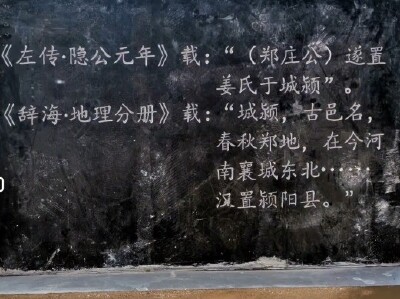 《左传·隐公元年》载：“（郑庄公）遂置
姜氏于城颍”。
《辞海·地理分册》载：“城颍，古邑名，
春秋郑地，在今河
南襄城东北……
汉置颍阳县。”